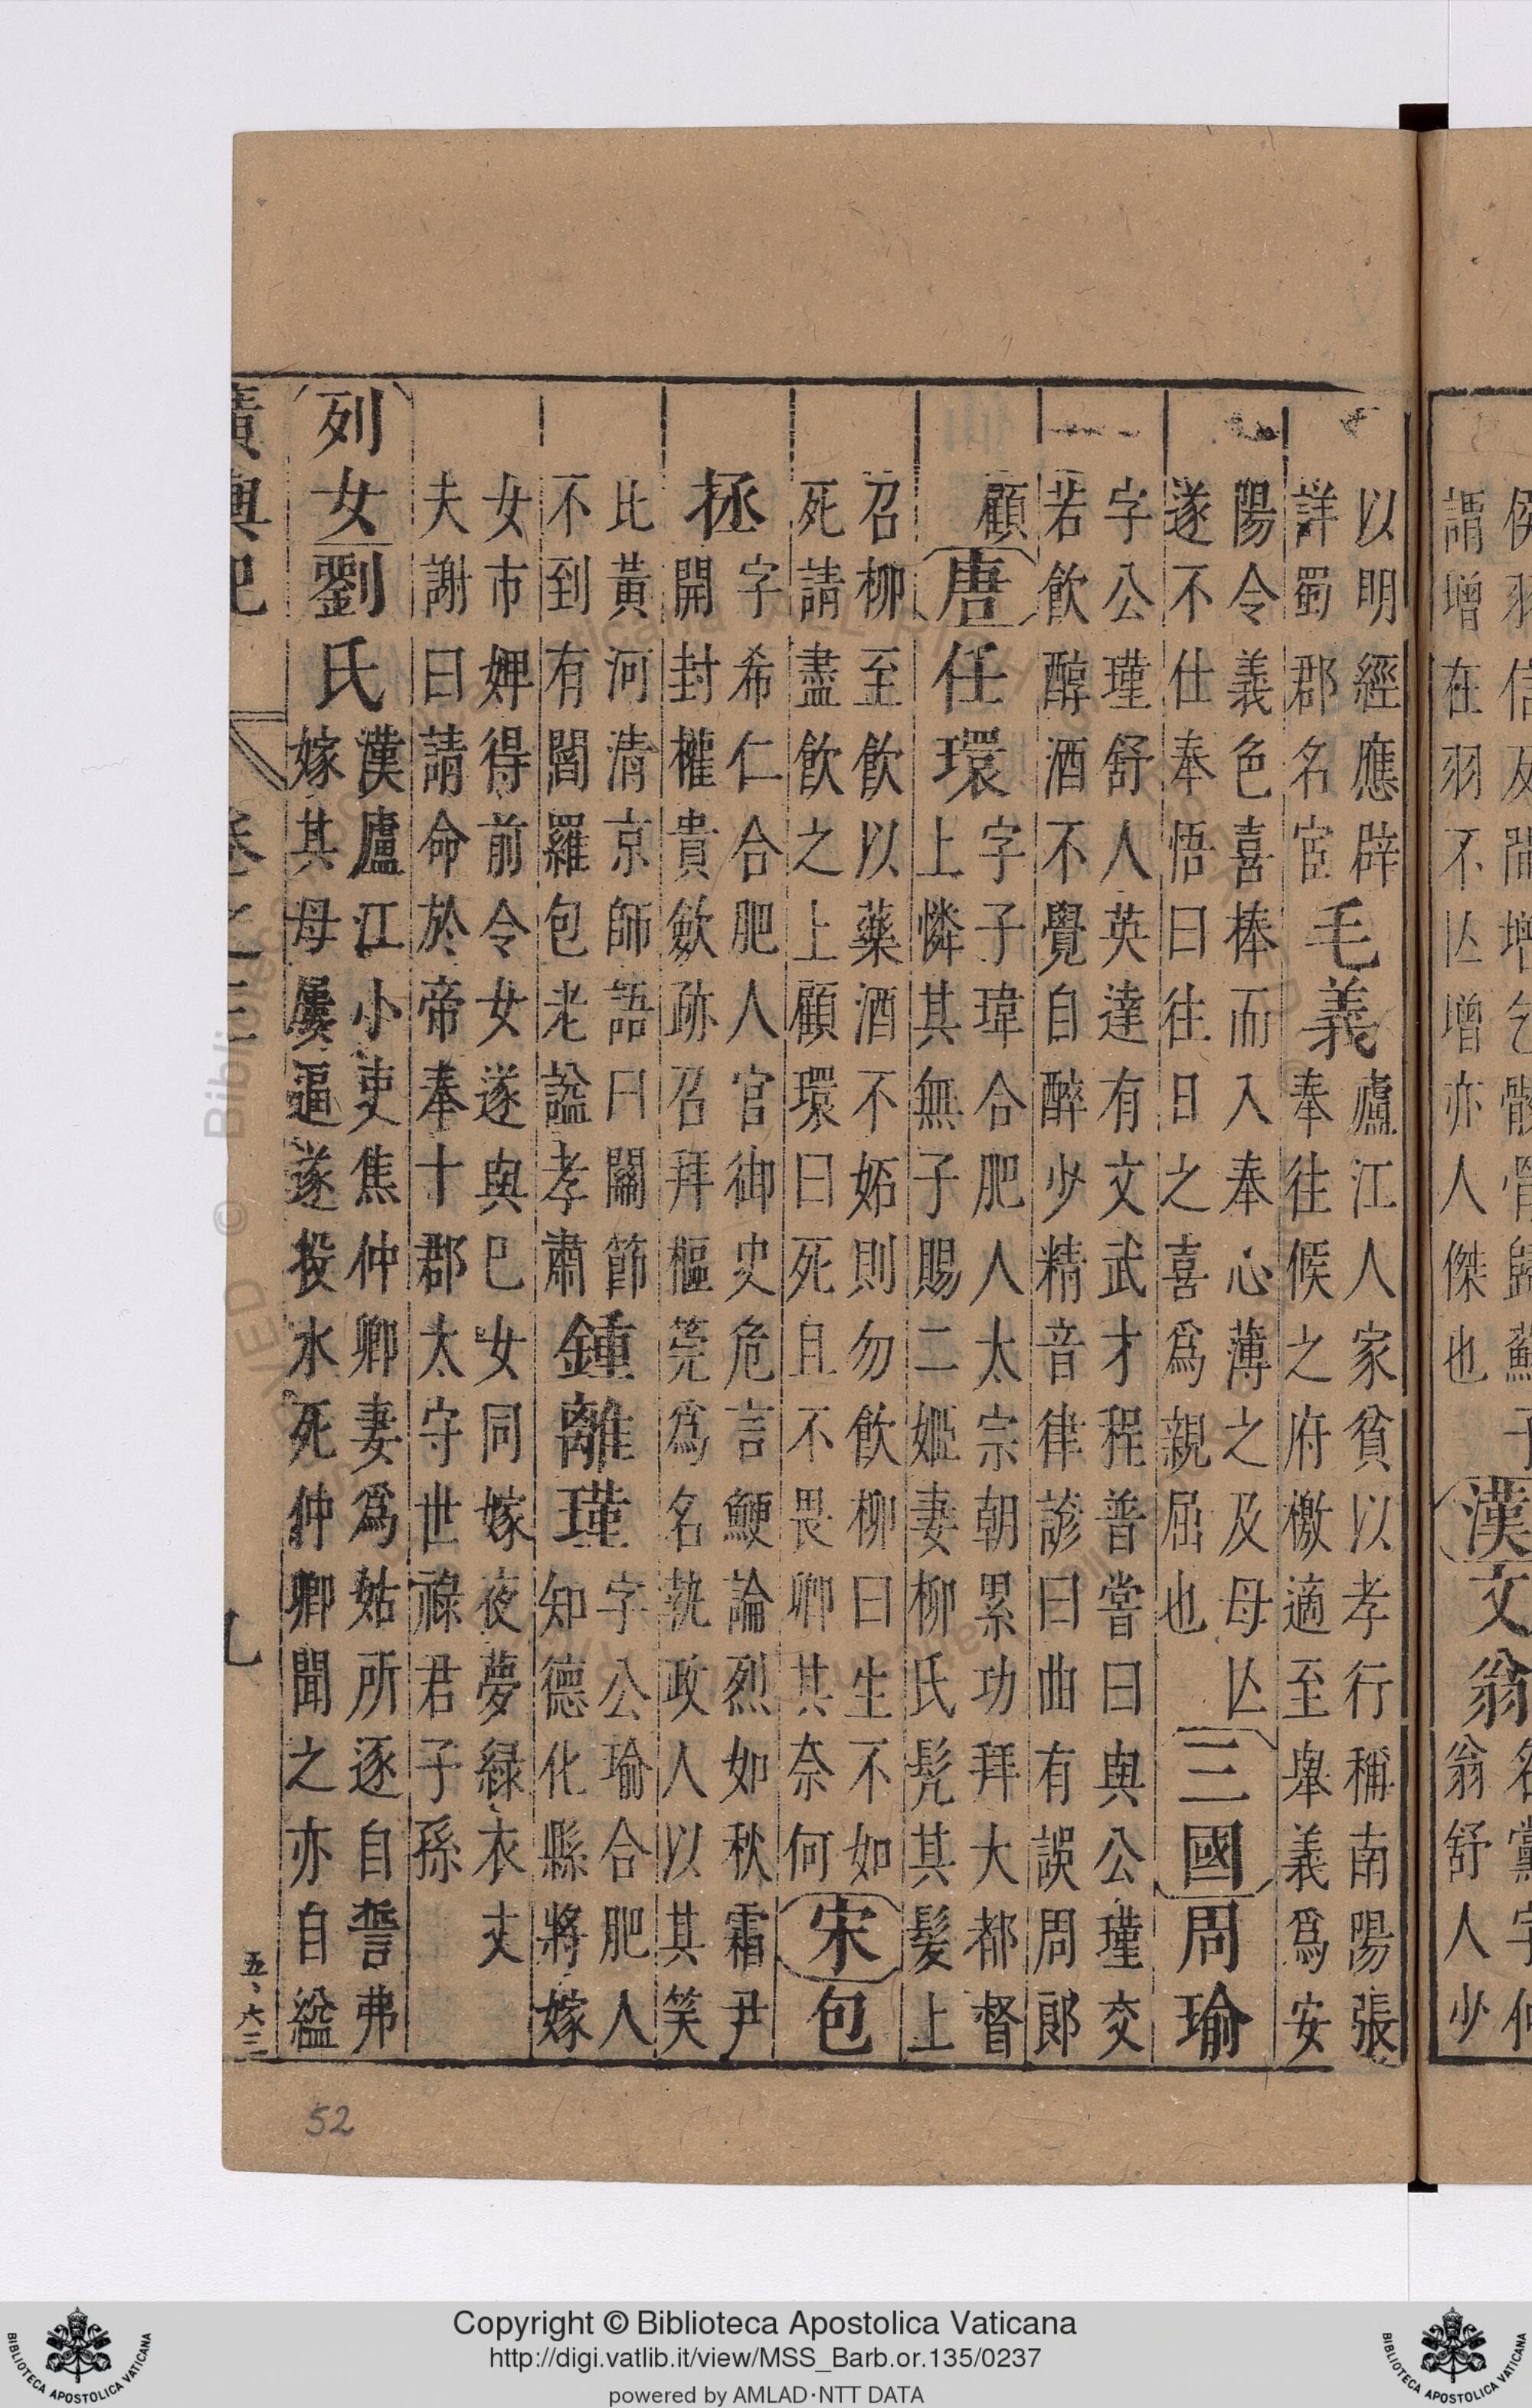 侯羽信及間增乞骸骨歸蘇子
謂增在羽不亾增亦人傑也
漢文翁
名黨字仲
翁舒人少
以明經應辟
詳蜀郡名宦
毛義
廬江人家貧以孝行稱南陽張
奉往候之府檄適至舉義爲安
陽令義色喜捧而入奉心薄之及母亾
遂不仕奉悟曰往日之喜爲親屈也
三國周瑜
字公瑾舒人英達有文武才程普嘗曰與公瑾交
若飲醇酒不覺自醉少精音律諺曰曲有誤周郎
顧
唐任環
字子瑋合肥人太宗朝累功拜大都督
上憐其無子賜二姬妻柳氏髡其髮上
召柳至飲以藥酒不妬則勿飲柳曰生不如
死請盡飲之上顧環曰死且不畏卿其奈何
宋包
拯
字希仁合肥人官御史危言鯁論烈如秋霜尹
開封權貴歛跡召拜樞筦爲名執政人以其笑
比黃河清京師語曰關節
不到有閻羅包老謚孝肅
鍾離瑾
字公瑜合肥人
知德化縣將嫁
女市婢得前令女遂與巳女同嫁夜夢緑衣丈
夫謝曰請命於帝奉十郡太守世祿君子孫
列女劉氏
漢廬江小吏焦仲卿妻爲姑所逐自誓弗
嫁其母屢逼遂投水死仲卿聞之亦自縊
廣輿記
卷之三
九
五、六三
52
Copyright © Biblioteca Apostolica Vaticana
http://digi.vatlib.it/view/MSS_Barb.or.135/0237
powered by AMLAD·NTT DATA
BIBLIOTECA APOSTOLICA VATICANA
BIBLIOTECA APOSTOLICA VATICANA